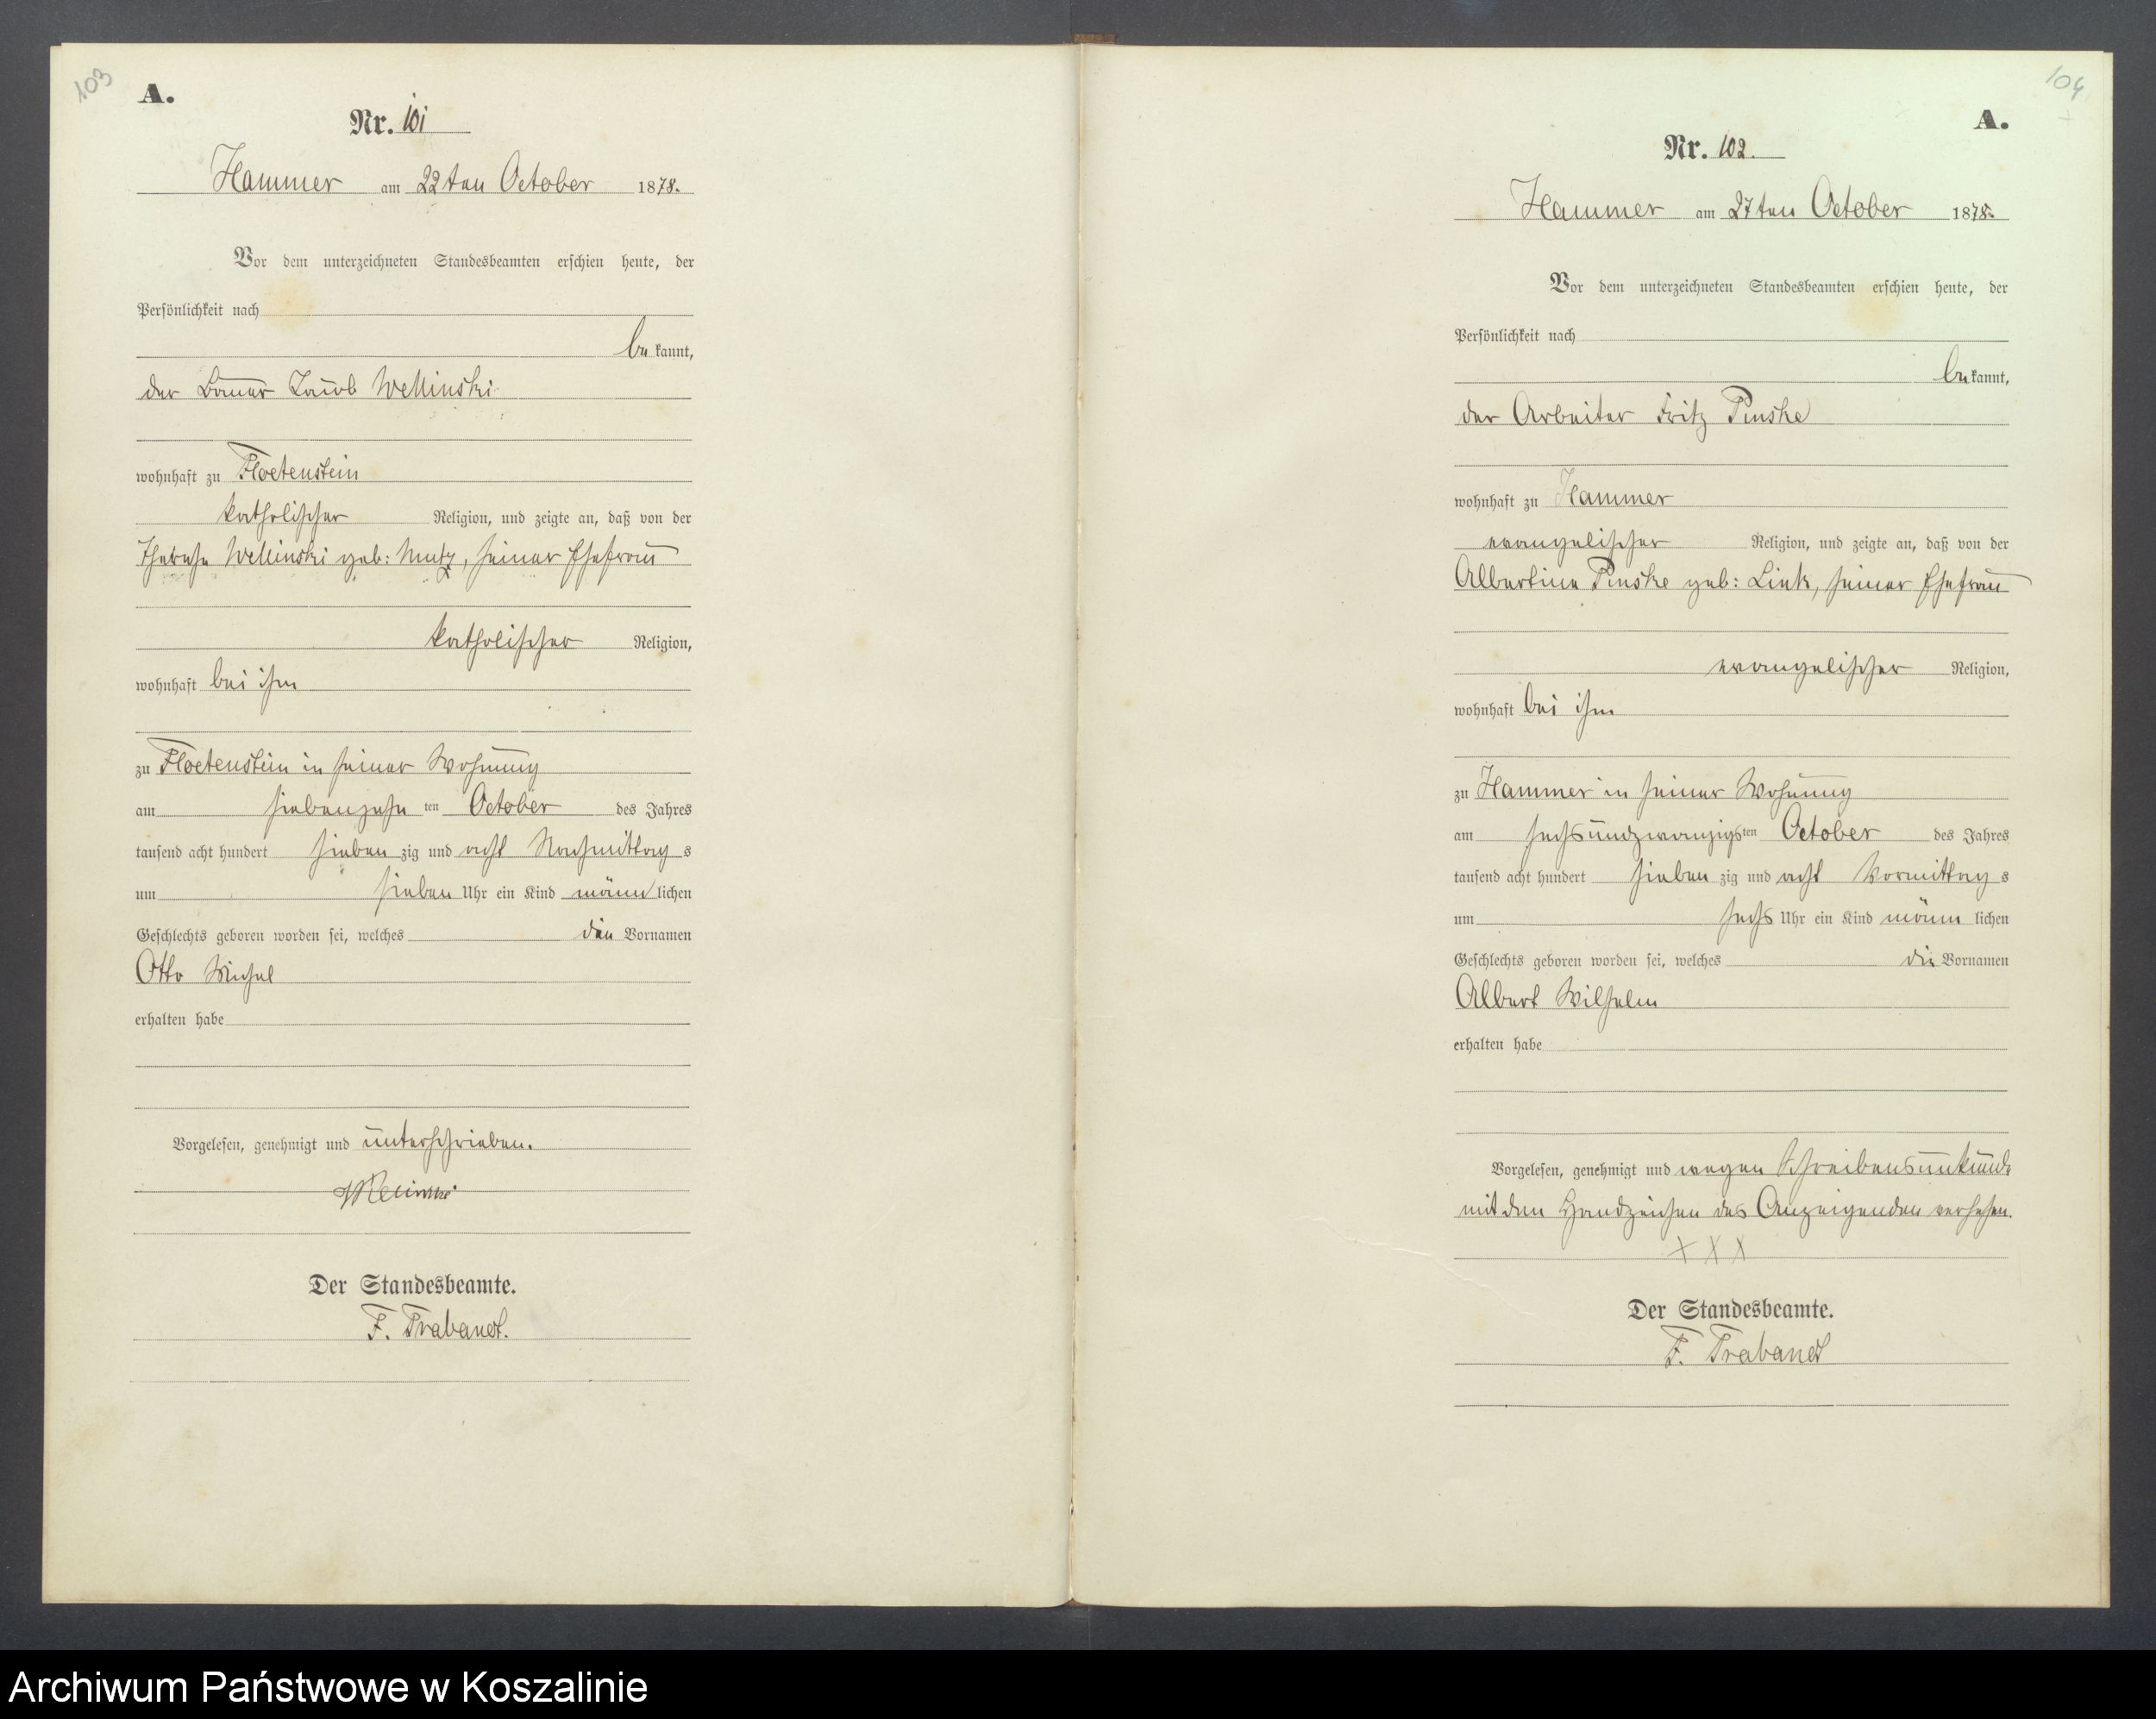 103
A.
Nr. 101
Hammer am 22ten October 1878.
Vor dem unterzeichneten Standesbeamten erschien heute, der
Persönlichkeit nach
bekannt,
der Bauer Jacob Wellinski
wohnhaft zu Floetenstein
katholischer Religion, und zeigte an, daß von der
Therese Wellinski geb: Mutz, seiner Ehefrau
katholischer Religion,
wohnhaft bei ihm
zu Floetenstein in seiner Wohnung
am siebenzehn ten October des Jahres
tausend acht hundert sieben zig und acht Nachmittag s
um sieben Uhr ein Kind männ lichen
Geschlechts geboren worden sei, welches den Vornamen
Otto Michel
erhalten habe
Vorgelesen, genehmigt und unterschrieben.
Der Standesbeamte.
F. Trabandt.
104
A.
Nr. 102.
Hammer am 27ten October 1878.
Vor dem unterzeichneten Standesbeamten erschien heute, der
Persönlichkeit nach
bekannt,
der Arbeiter Fritz Pinske
wohnhaft zu Hammer
evangelischer Religion, und zeigte an, daß von der
Albertine Pinske geb: Link, seiner Ehefrau
evangelischer Religion,
wohnhaft bei ihm
zu Hammer in seiner Wohnung
am sechsundzwanzigsten October des Jahres
tausend acht hundert sieben zig und acht Vormittag s
um sechs Uhr ein Kind männ lichen
Geschlechts geboren worden sei, welches die Vornamen
Albert Wilhelm
erhalten habe
Vorgelesen, genehmigt und wegen Schreibensunkunde
mit den Handzeichen des Anzeigenden versehen.
X X X
Der Standesbeamte.
F. Trabandt
Archiwum Państwowe w Koszalinie